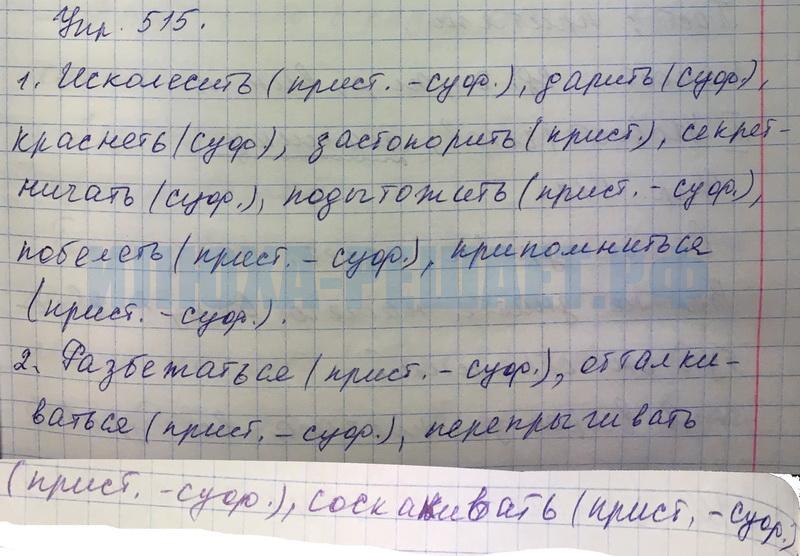 Упр. 515.
1. Исколесить (прист. - суф.), дарить (суф.),
краснеть (суф.), застопорить (прист.), секрет-
ничать (суф.), подытожить (прист. - суф.),
побелеть (прист. - суф.), припомниться
(прист. - суф.).
ИЛЮХА-РЕШАЕТ.РФ
2. Разбежаться (прист. - суф.), отталки-
ваться (прист. - суф.), перепрыгивать
(прист. - суф.), соскакивать (прист. - суф.)